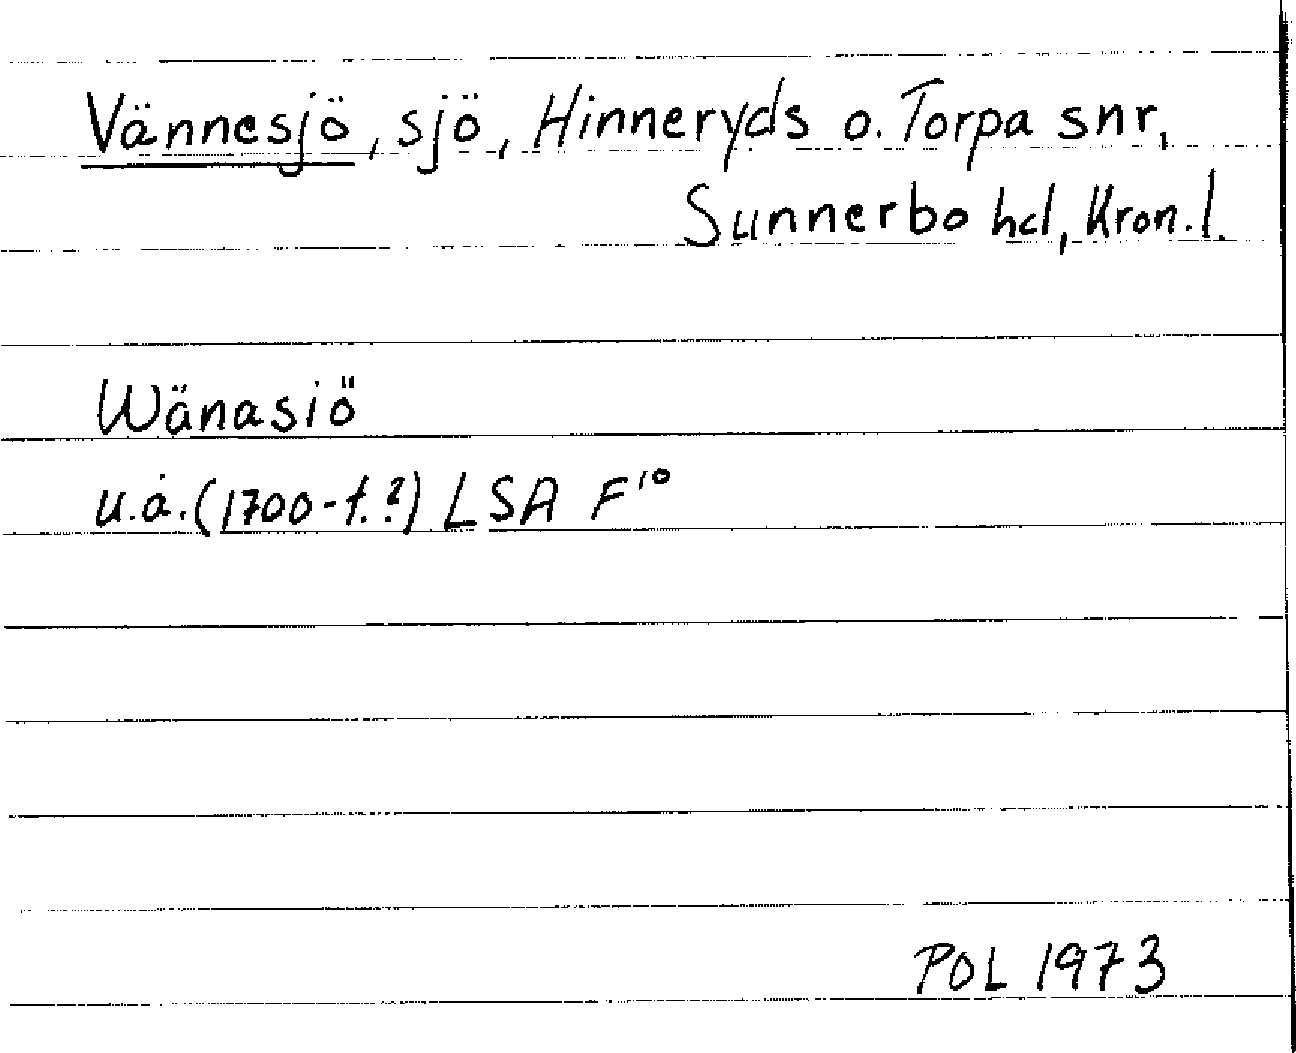 Vännesjö, sjö, Hinneryds o. Torpa snr,
Sunnerbo hd, Kron. l.
Wänasiö
u.å. (1700-t.?) LSA F¹⁰
POL 1973